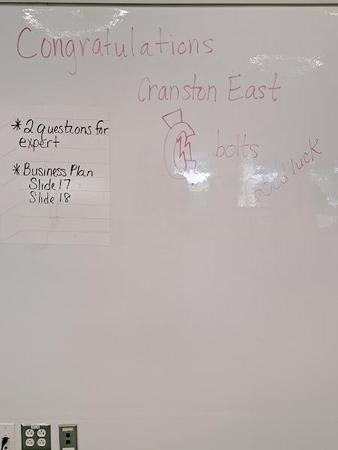 Congratulations
Cranston East
bolts
Good luck
*2 questions for
expert
*Business Plan
Slide 17
Slide 18